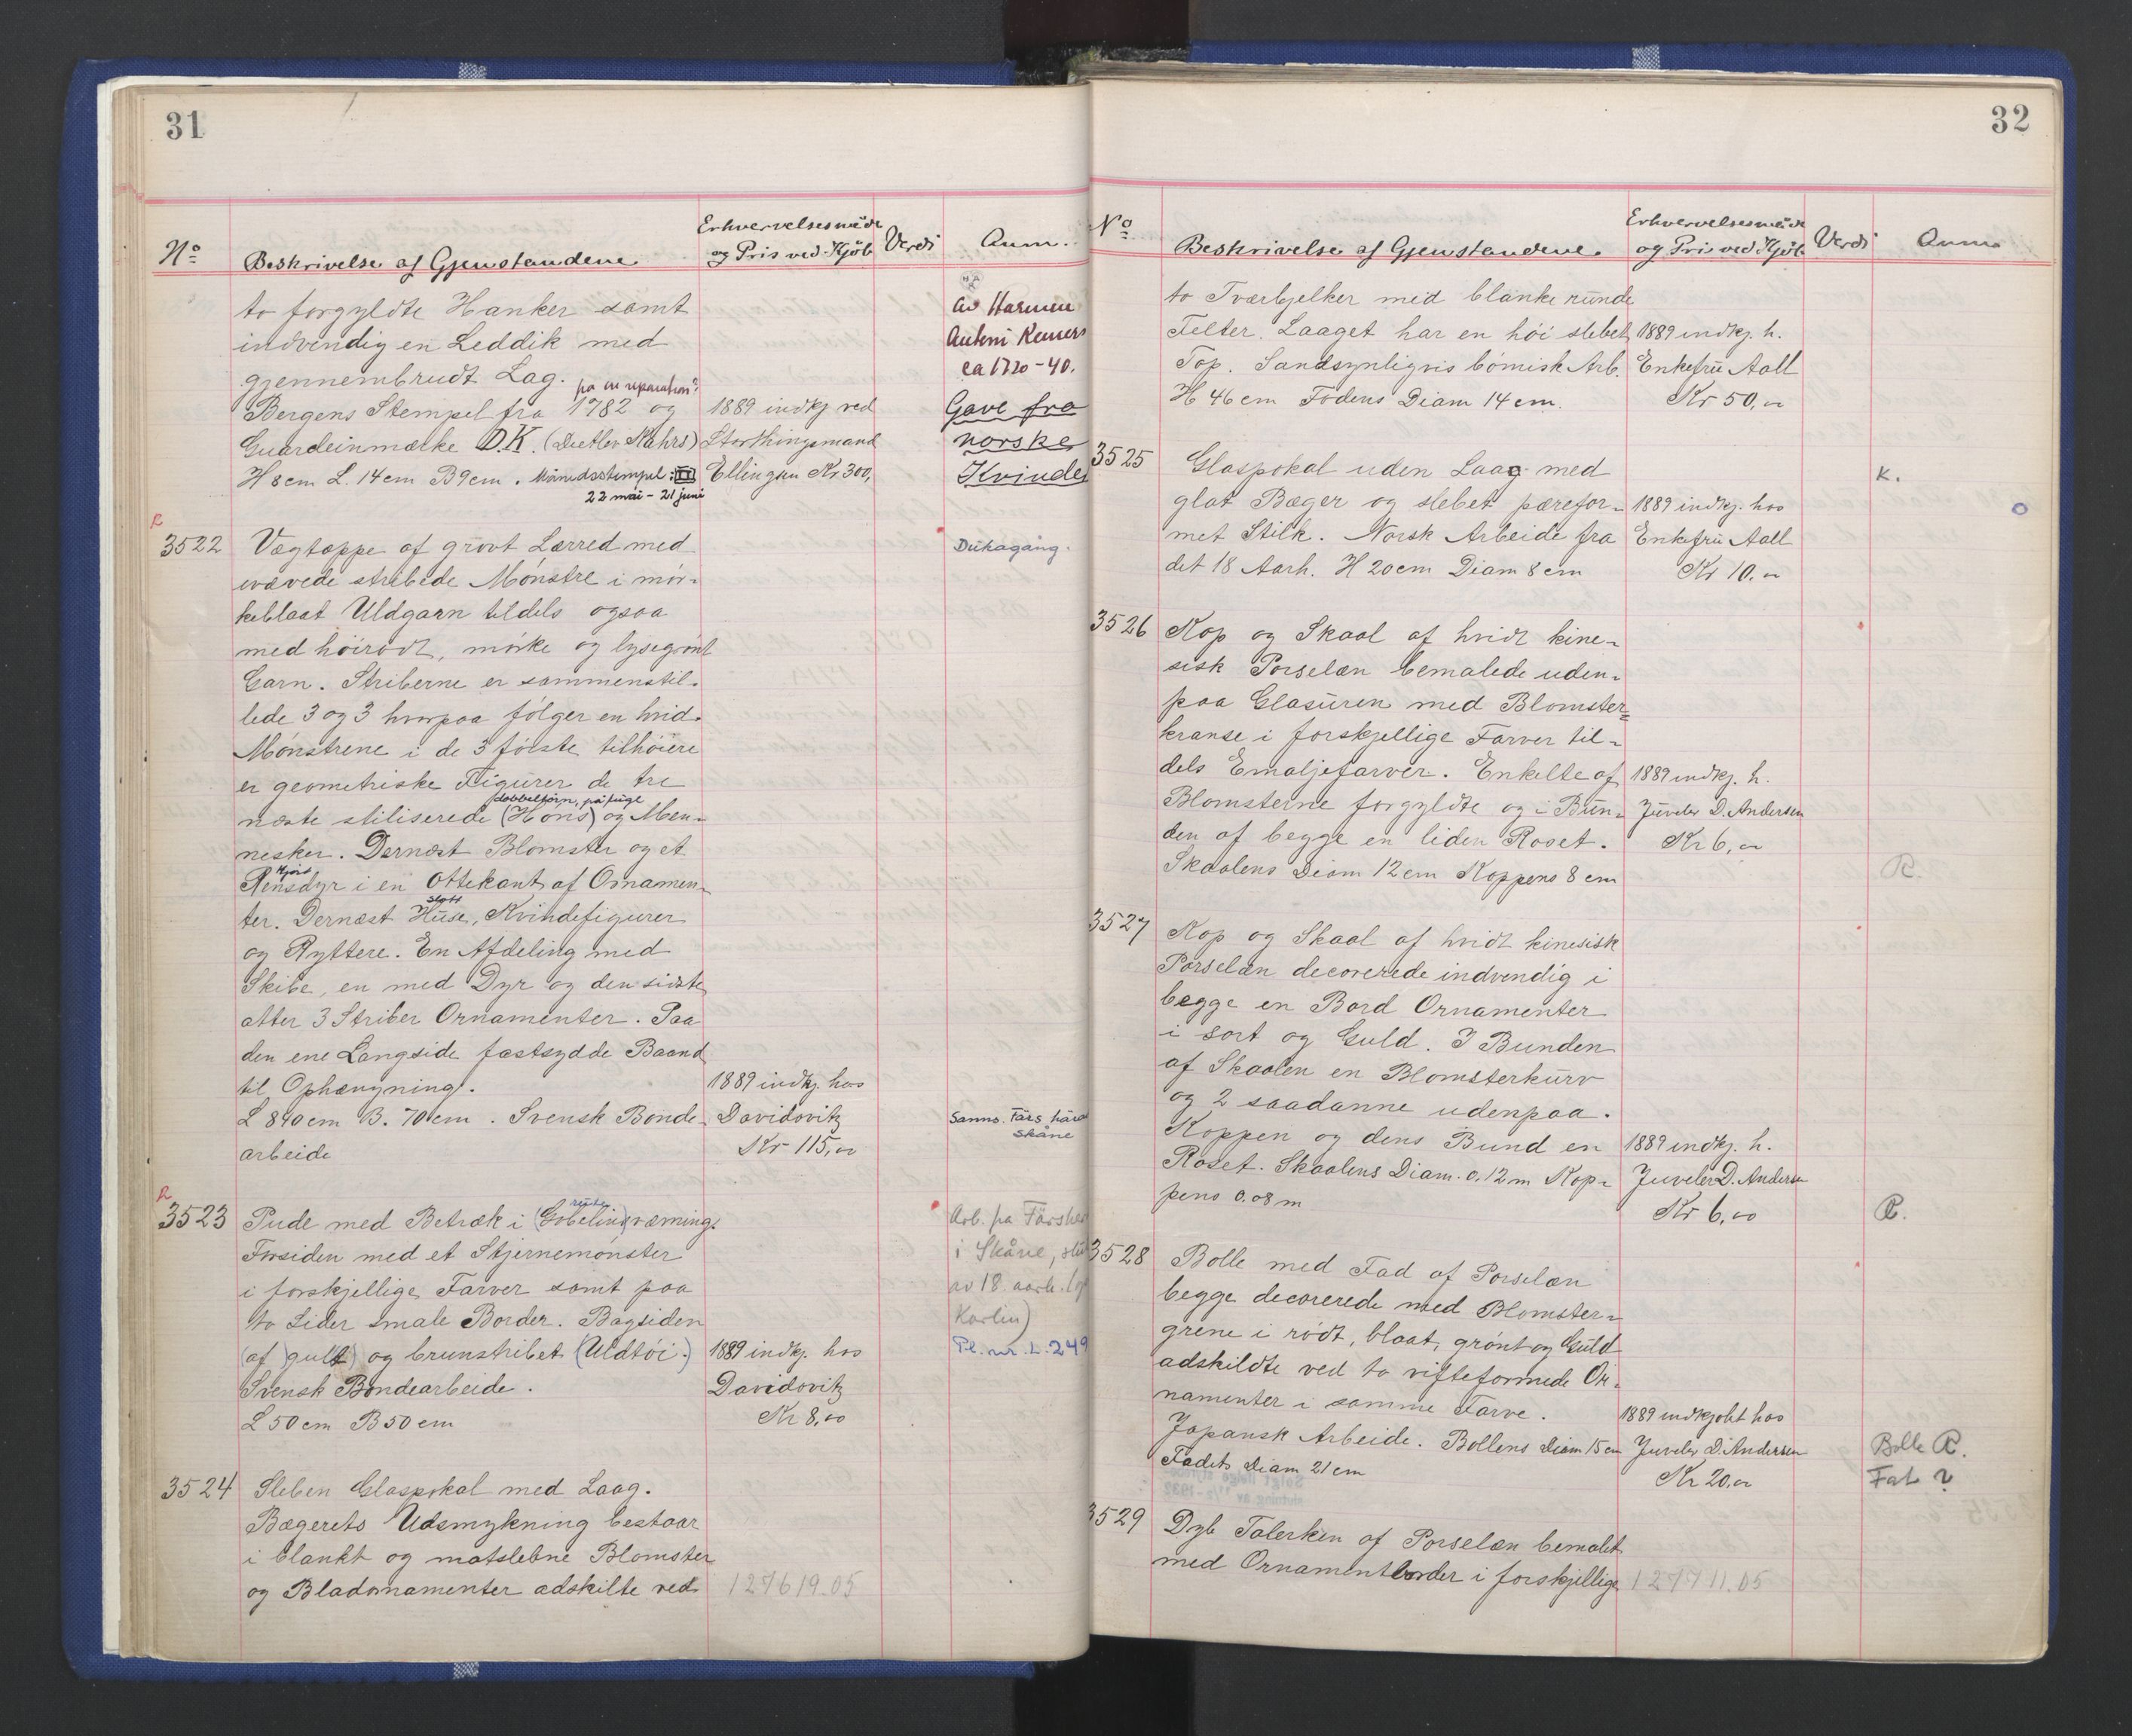 31
No
Beskrivelse af Gjenstandene
Erhvervelsesmåde
og Pris ved Kjöb
Verdi
Anm.
to forgyldte Hanker samt
indvendig en Leddik med
gjennembrudt Lag.
på en reparation?
Bergens Stempel fra 1782 og
Guardeinmærke D.K. (Dietlev Kahrs)
H 8 cm L. 14 cm B 9 cm. Månedsstempel:
22 mai - 21 juni
1889 indkj ved
Storthingsmand
Ellingsen Kr 300,
Av Harmen
Antoni Reimers
ca 1720-40.
Gave fra
norske
Kvinder
R
3522
Vægtæppe af grovt Lærred med
ivævede stribede Mönstre i mör-
keblaat Uldgarn tildels ogsaa
med höirödt, mörke og lysegrönt
Garn. Striberne er sammenstil-
lede 3 og 3 hvorpaa fölger en hvid.
Mönstrene i de 3 förste tilhöiere
er geometriske Figurer de tre
dobbelörn, påfugl
næste stiliserede (Höns) og Men-
nesker. Dernæst Blomster og et
Hjors
Rensdyr i en Ottekant af Ornamen-
slott
ter. Dernæst Huse, Kvindefigurer
og Ryttere. En Afdeling med
Skibe, en med Dyr og den sidste
atter 3 Striber Ornamenter. Paa
den ene Langside fæstsydde Baand
til Ophængning.
L 840 cm B. 70 cm. Svensk Bonde-
arbeide
1889 indkj. hos
Davidovitz
Kr 115,00
Dukagång.
Sanns. Färs härad
Skåne
R
3523
Pude med Betræk i (Gobelin) væming.
Forsiden med et Stjernemönster
i forskjellige Farver samt paa
to Sider smale Border. Bagsiden
(af) gult og brunstribet (Uldtöi.)
Svensk Bondearbeide.
L 50 cm B 50 cm
1889 indkj. hos
Davidovitz
Kr 8,00
Arb. på Färsher
i Skåne,
av 18 aarh.
Karlin)
Pl. nr. L. 249
3524
Sleben Glaspokal med Laag.
Bægerets Udsmykning bestaar
i blankt og matslebne Blomster
og Bladornamenter adskilte ved
127619.05
32
No
Beskrivelse af Gjenstandene.
Erhvervelsesmåde
og Pris ved Kjöb
Verdi
Anm
to Tværbjelker mid blanke runde
Felter. Laaget har en höi slebet
Top. Sandsynligvis bömisk Arb.
H 46 cm Fodens Diam 14 cm.
1889 indkj. h.
Enkefru Aall
Kr 50,00
3525
Glaspokal uden Laag med
glat Bæger og slebet pærefor-
met Stilk. Norsk Arbeide fra
det 18 Aarh. H 20 cm Diam 8 cm
1889 indkj. hos
Enkefru Aall
Kr 10,00
K.
3526
Kop og Skaal af hvidt kine-
sisk Porselæn bemalede uden-
paa Glasuren med Blomster-
kranse i forskjellige Farver til-
dels Emaljefarver. Enkelte af
Blomsterne forgyldte og i Bun-
den af begge en liden Roset.
Skaalens Diam 12 cm Koppens 8 cm
1889 indkj. h.
Juveler D. Andersen
Kr 6,00
R.
3527
Kop og Skaal af hvidt kinesisk
Porselæn decorerede indvendig i
begge en Bord Ornamenter
i sort og Guld. I Bunden
af Skaalen en Blomsterkurv
og 2 saadanne udenpaa.
Koppen og dens Bund en
Roset. Skaalens Diam. 0.12 m Kop-
pens 0.08 m
1889 indkj. h.
Juveler D. Andersen
Kr 6,00
R.
3528
Bolle med Fad af Porselæn
begge decorerede med Blomster-
grene i rödt, blaat, grönt og Guld
adskildte ved to vifteformede Or-
namenter i samme Farve.
Japansk Arbeide. Bollens Diam 15 cm
Fadets Diam 21 cm
1889 indkjobt hos
Juveler D. Andersen
Kr 20,00
Bolle R.
Fat ?
3529
Dyb Talerken af Porselæn bemalet
med Ornamentborder i forskjellige
127711.05